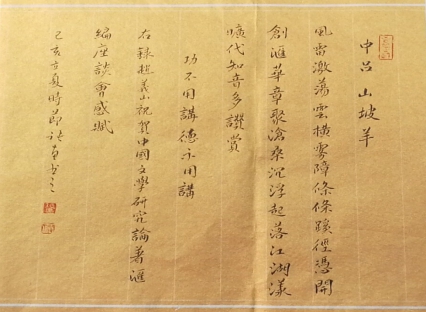 中吕山坡羊
風雷激荡雲橫雾障條條蹊徑憑開
創滙華章聚滄桑沉浮起落江湖漾
曠代知音多讚賞
功不用講德不用講
右録趙義山祝賀中國文學研究論著滙
編座談會感賦
己亥古夏時節